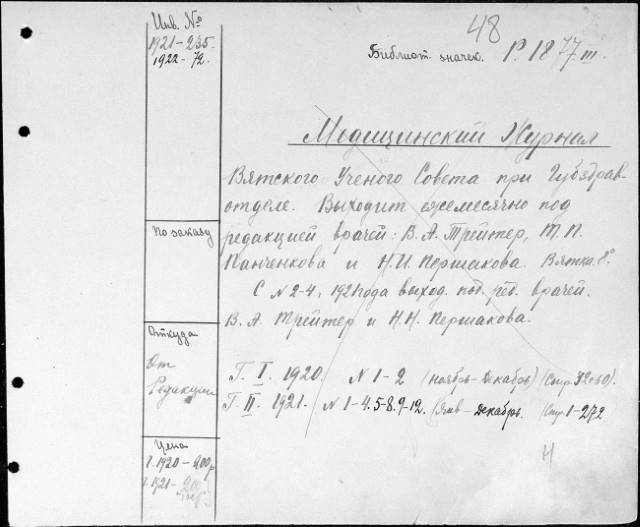 48
Инв. №
1921-235.
1922-72.
Библиот. значек. Р. 18 77.III.
Медицинский Журнал
Вятского Ученого Совета при Губздрав-
отделе. Выходит ежемесячно под
редакцией врачей: В.А. Трейтер, М.П.
Панченкова и Н.И. Першакова. Вятка. 8°
С №2-4, 1921 года выход. под. ред. врачей.
В.А. Трейтер и Н.Н. Першакова.
По заказу
Откуда
От
Редакции
Г. I. 1920. №1-2 (ноябрь-Декабрь) (Стр.
Г. II. 1921. №1-4.5-8.9-12. (Янв-Декабрь. (Стр. 1-272.
Цена
1920-200р
1921-200
Н